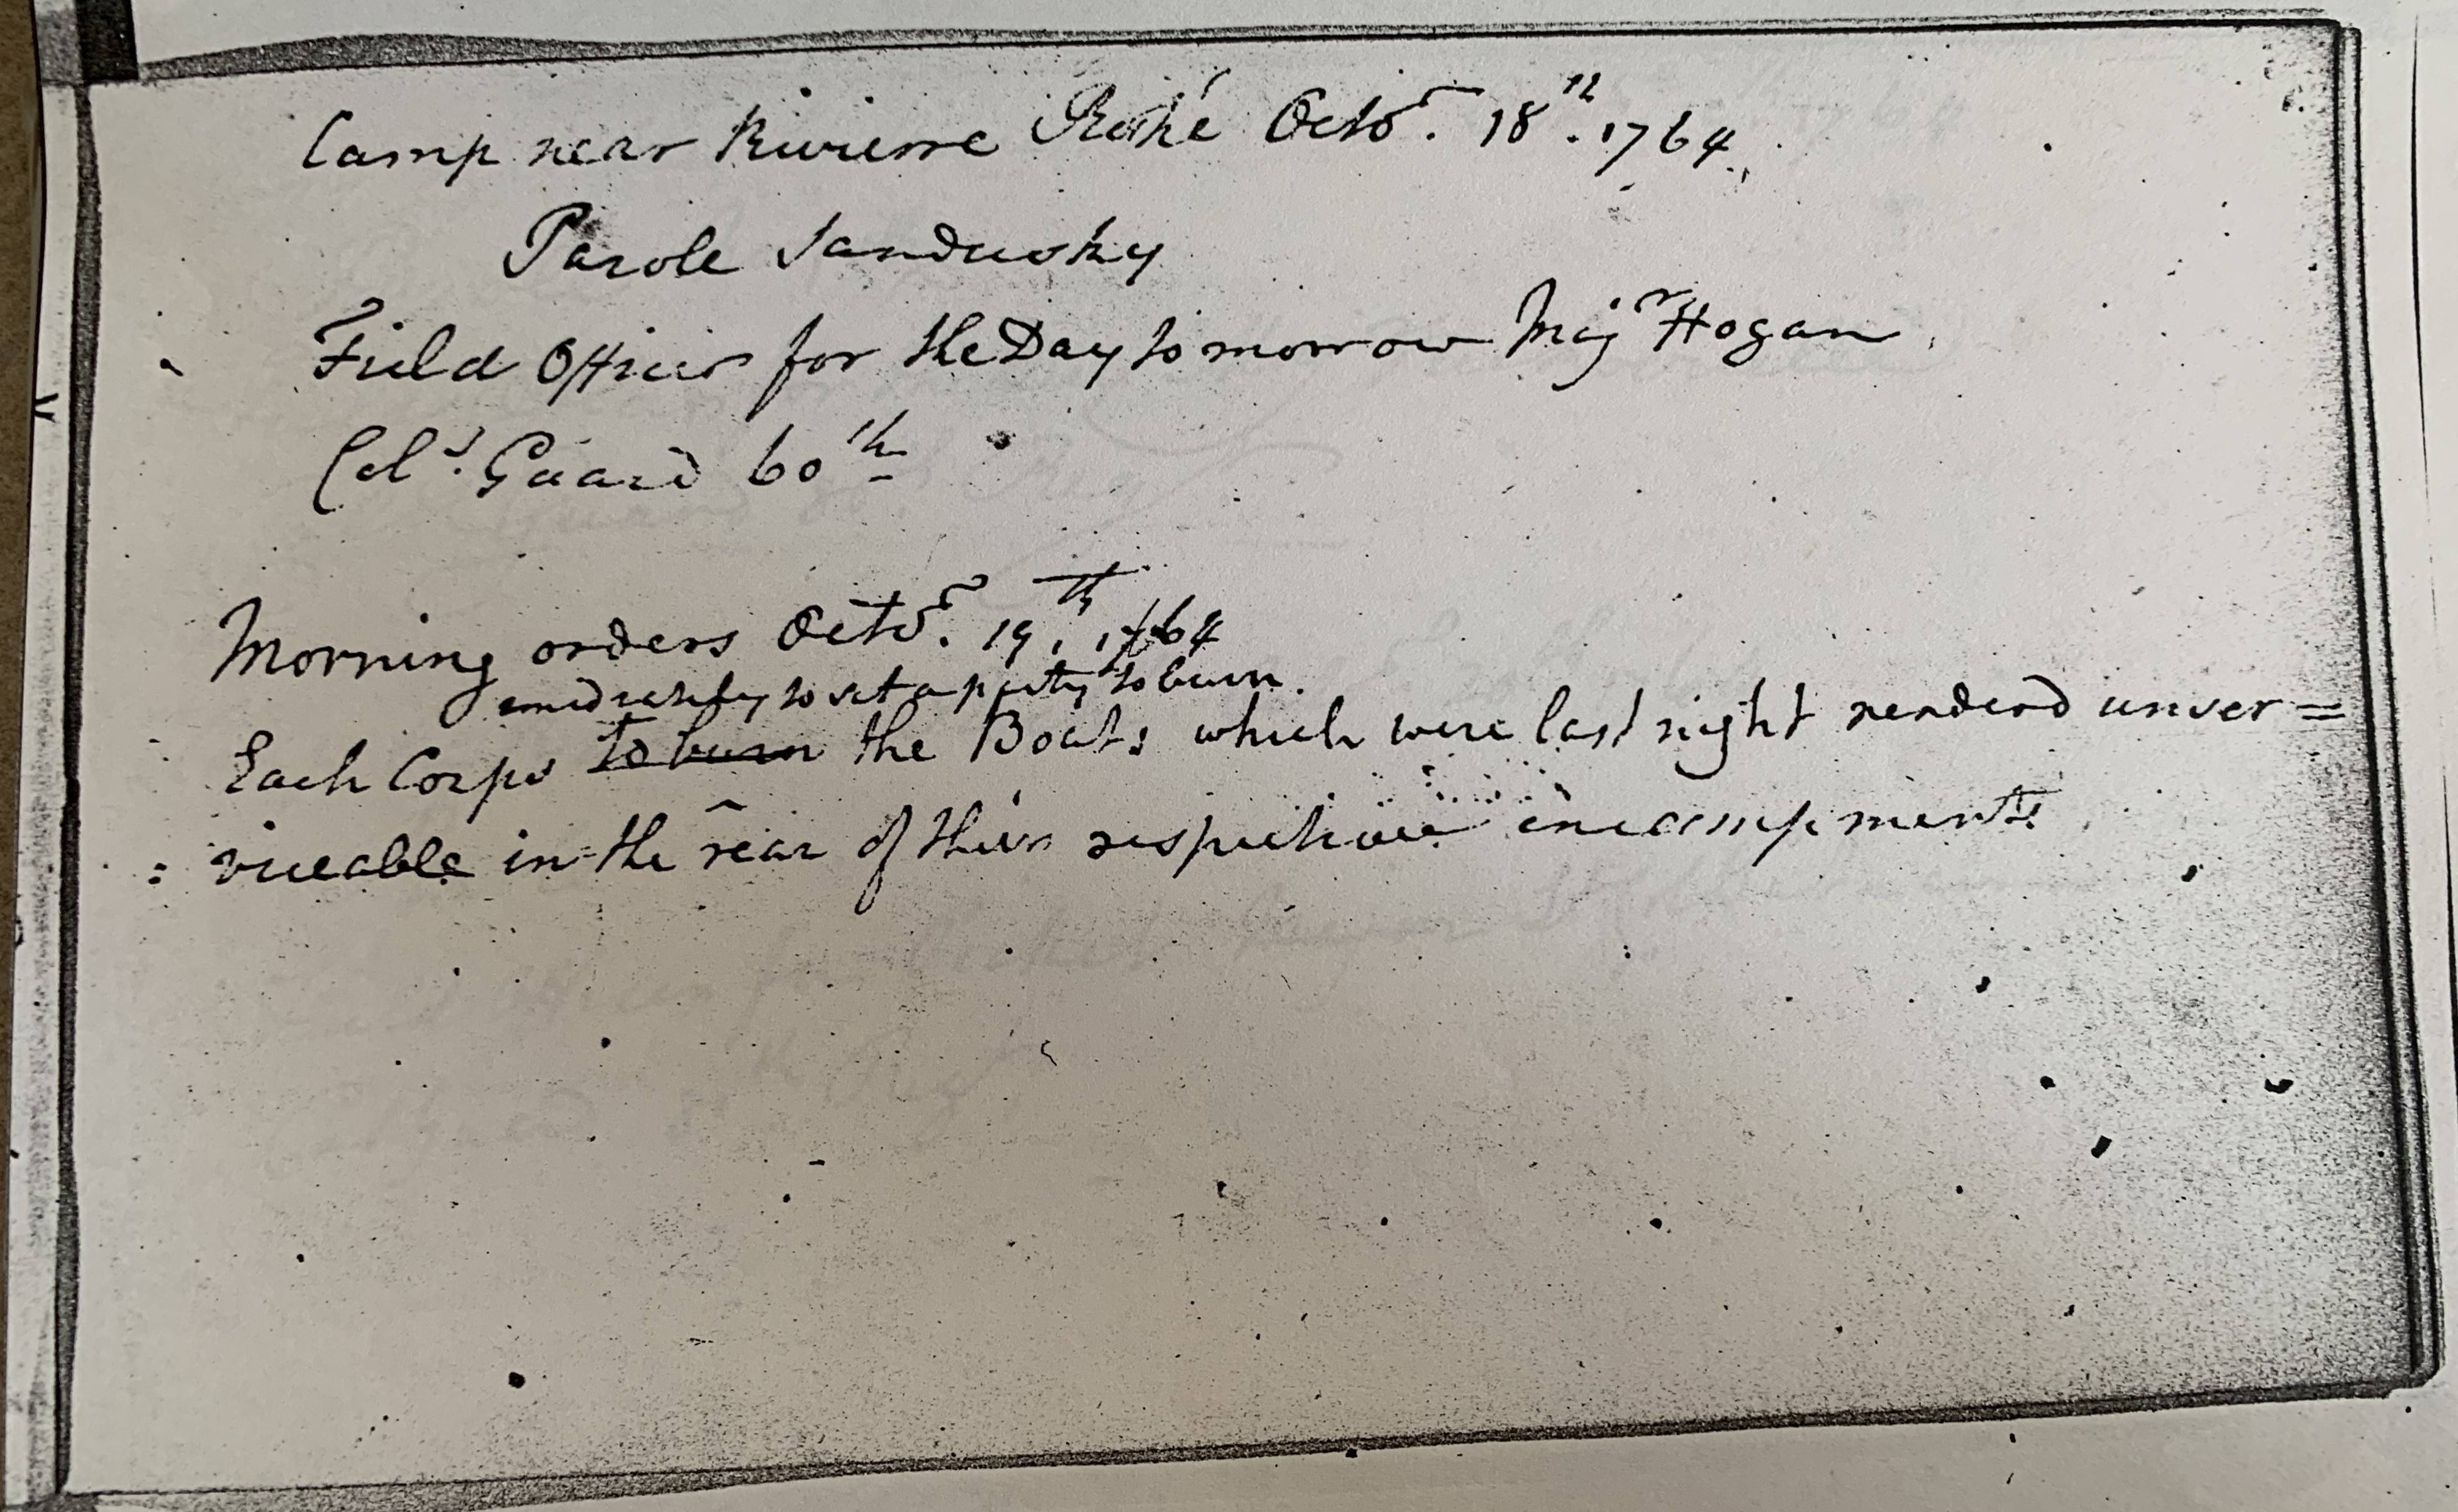 Camp near Rivierre Roché Octobr. 18th. 1764
Parole Sandusky
Field Officer for the Day to morrow Majr Hogan
Colls. Guard 60th
Morning orders Octobr. 19th. 1764
emidiately to set a party to burn
Each Corps to burn the Boats which were last night renderd unser=
=viceable in the rear of their respective encampments